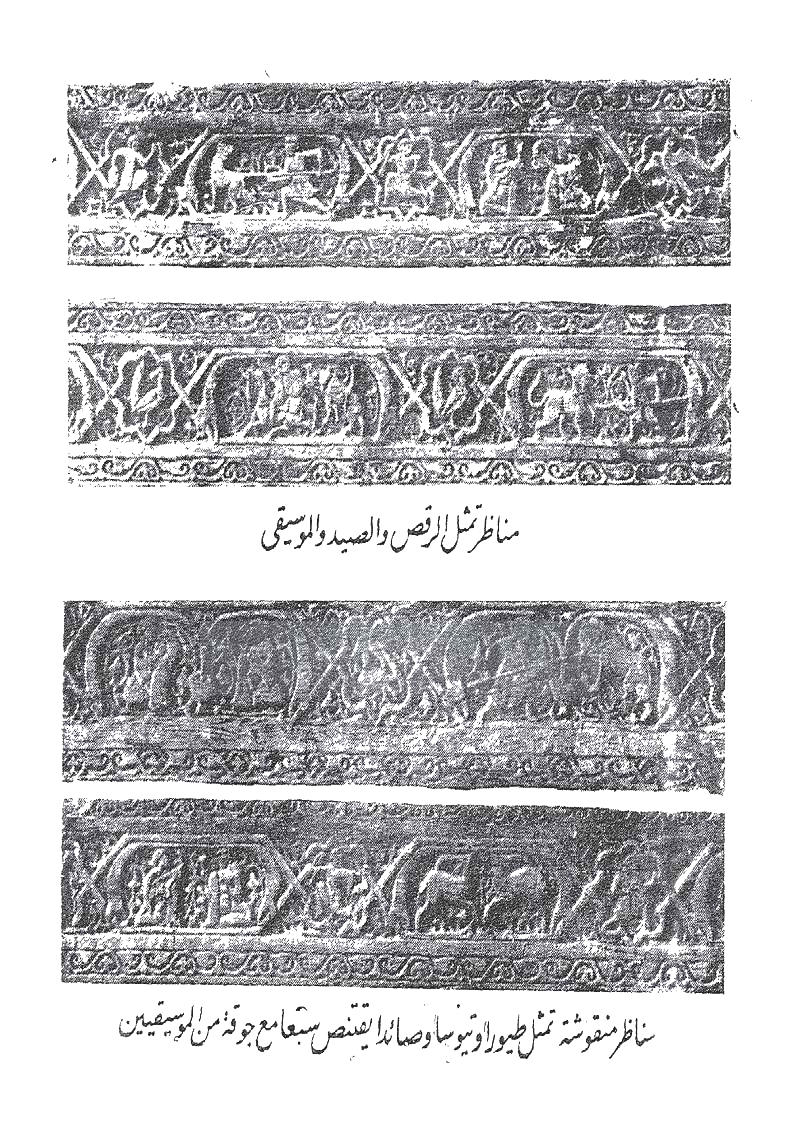 مناظر تمثل الرقص والصيد والموسيقى
مناظر منقوشة تمثل طيورا وتيوسا وصائدا يقتنص سبعا مع جوقة من الموسيقيين